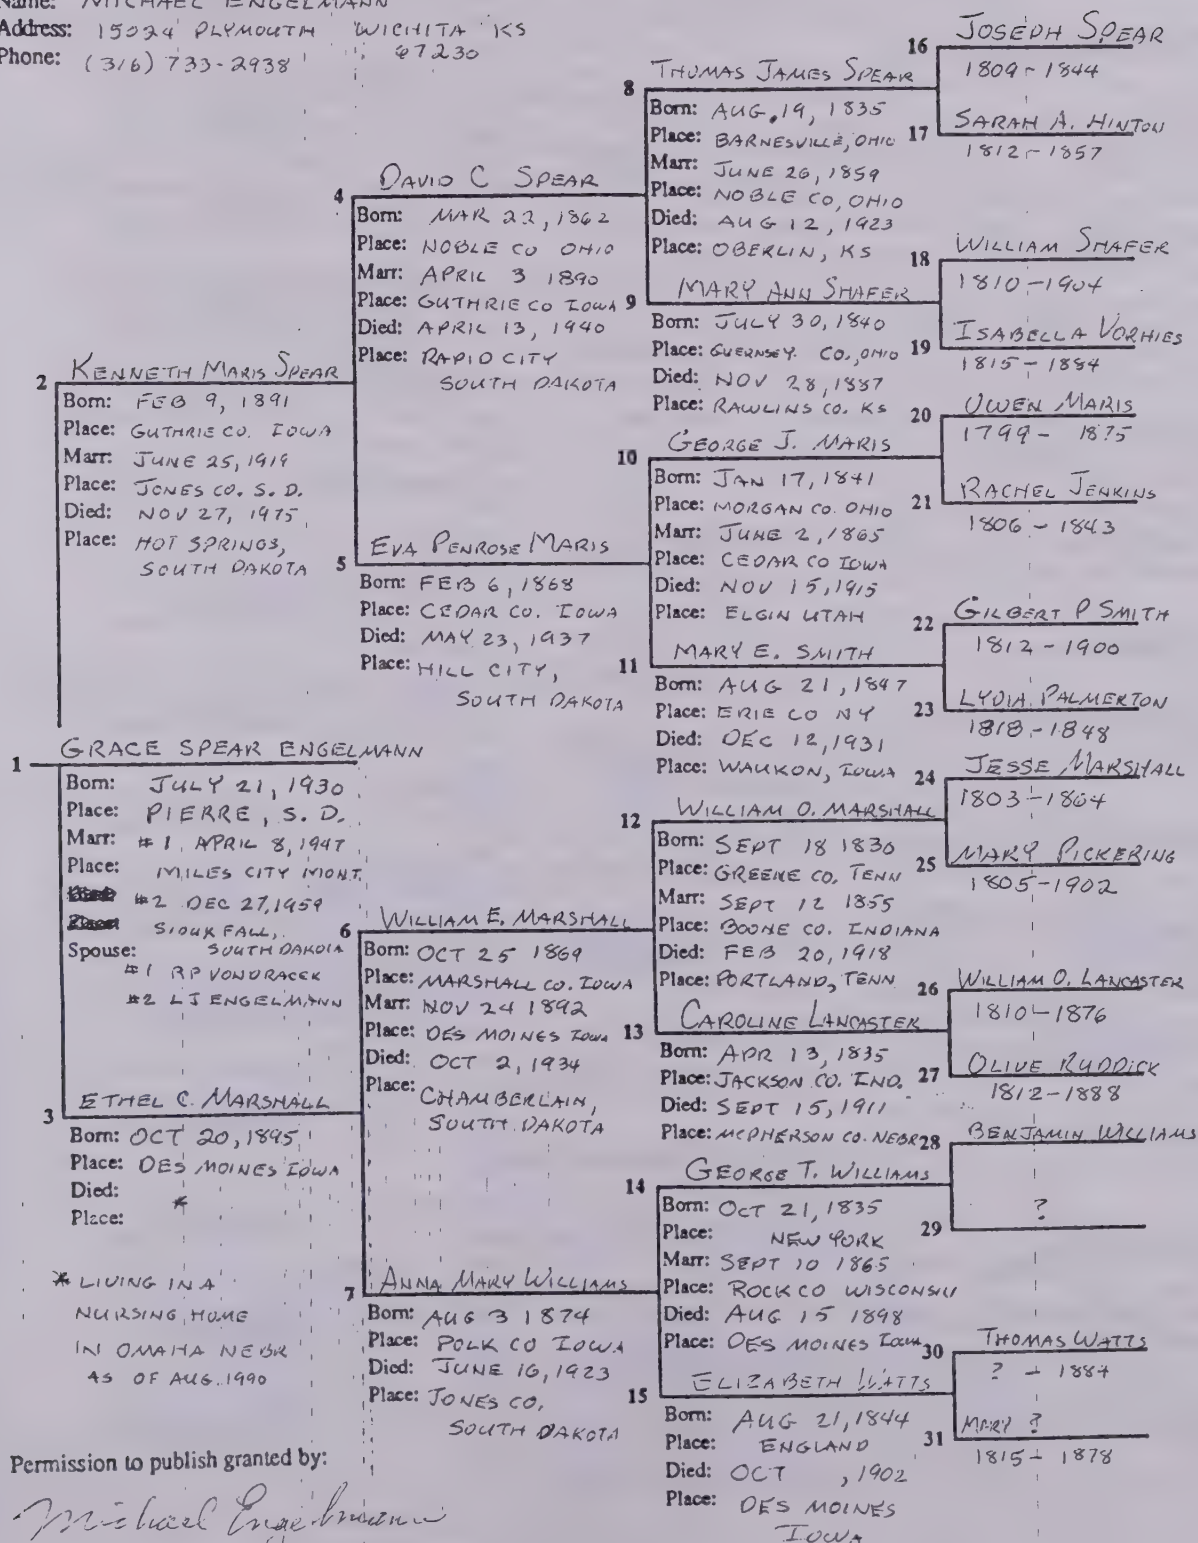 Name: MICHAEL ENGELMANN
Address: 15024 PLYMOUTH WICHITA KS
67230
Phone: (316) 733-2938
1 GRACE SPEAR ENGELMANN
Born: JULY 21, 1930
Place: PIERRE, S. D.
Marr: #1 APRIL 8, 1947
Place: MILES CITY MONT.
#2 DEC 27, 1959
SIOUX FALL,
SOUTH DAKOTA
Spouse:
#1 RP VONDRACEK
#2 LJ ENGELMANN
2 KENNETH MARIS SPEAR
Born: FEB 9, 1891
Place: GUTHRIE CO. IOWA
Marr: JUNE 25, 1919
Place: JONES CO. S. D.
Died: NOV 27, 1975
Place: HOT SPRINGS,
SOUTH DAKOTA
3 ETHEL C. MARSHALL
Born: OCT 20, 1895
Place: DES MOINES IOWA
Died: *
Place:
* LIVING IN A
NURSING HOME
IN OMAHA NEBR
AS OF AUG. 1990
4 DAVID C SPEAR
Born: MAR 22, 1862
Place: NOBLE CO OHIO
Marr: APRIL 3 1890
Place: GUTHRIE CO IOWA
Died: APRIL 13, 1940
Place: RAPID CITY
SOUTH DAKOTA
5 EVA PENROSE MARIS
Born: FEB 6, 1868
Place: CEDAR CO. IOWA
Died: MAY 23, 1937
Place: HILL CITY,
SOUTH DAKOTA
6 WILLIAM E. MARSHALL
Born: OCT 25 1869
Place: MARSHALL CO. IOWA
Marr: NOV 24 1892
Place: DES MOINES IOWA
Died: OCT 2, 1934
Place: CHAMBERLAIN,
SOUTH DAKOTA
7 ANNA MARY WILLIAMS
Born: AUG 3 1874
Place: POLK CO IOWA
Died: JUNE 16, 1923
Place: JONES CO,
SOUTH DAKOTA
8 THOMAS JAMES SPEAR
Born: AUG. 19, 1835
Place: BARNESVILLE, OHIO
Marr: JUNE 26, 1859
Place: NOBLE CO, OHIO
Died: AUG 12, 1923
Place: OBERLIN, KS
9 MARY ANN SHAFER
Born: JULY 30, 1840
Place: GUERNSEY. CO., OHIO
Died: NOV 28, 1887
Place: RAWLINS CO. KS
10 GEORGE J. MARIS
Born: JAN 17, 1841
Place: MORGAN CO. OHIO
Marr: JUNE 2, 1865
Place: CEDAR CO IOWA
Died: NOV 15, 1915
Place: ELGIN UTAH
11 MARY E. SMITH
Born: AUG 21, 1847
Place: ERIE CO NY
Died: DEC 12, 1931
Place: WAUKON, IOWA
12 WILLIAM O. MARSHALL
Born: SEPT 18 1830
Place: GREENE CO. TENN
Marr: SEPT 12 1855
Place: BOONE CO. INDIANA
Died: FEB 20, 1918
Place: PORTLAND, TENN
13 CAROLINE LANCASTER
Born: APR 13, 1835
Place: JACKSON CO. IND.
Died: SEPT 15, 1911
Place: MCPHERSON CO. NEBR
14 GEORGE T. WILLIAMS
Born: OCT 21, 1835
Place: NEW YORK
Marr: SEPT 10 1865
Place: ROCK CO WISCONSIN
Died: AUG 15 1898
Place: DES MOINES IOWA
15 ELIZABETH WATTS
Born: AUG 21, 1844
Place: ENGLAND
Died: OCT , 1902
Place: DES MOINES
IOWA
16 JOSEPH SPEAR
1809-1844
17 SARAH A. HINTON
1812-1857
18 WILLIAM SHAFER
1810-1904
19 ISABELLA VORHIES
1815-1884
20 OWEN MARIS
1799- 1875
21 RACHEL JENKINS
1806-1843
22 GILBERT P SMITH
1812-1900
23 LYDIA PALMERTON
1818-1848
24 JESSE MARSHALL
1803-1864
25 MARY PICKERING
1805-1902
26 WILLIAM O. LANCASTER
1810-1876
27 OLIVE RUDDICK
1812-1888
28 BENJAMIN WILLIAMS
29 ?
30 THOMAS WATTS
? - 1884
31 MARY ?
1815- 1878
Permission to publish granted by:
Michael Engelmann